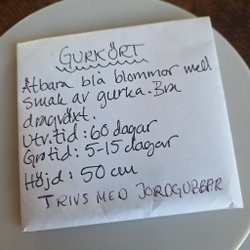 GURKÖRT
Ätbara blå blommor med
smak av gurka. Bra
dragväxt.
Utv.tid: 60 dagar
Grotid: 5-15 dagar
Höjd: 50 cm
TRIVS MED JORDGUBBAR